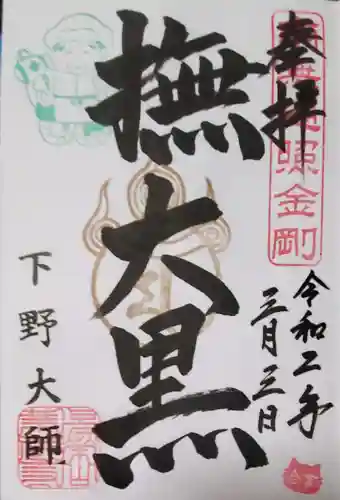 奉拝
遍照金剛
令和二年
三月三日
撫大黒
下野大師